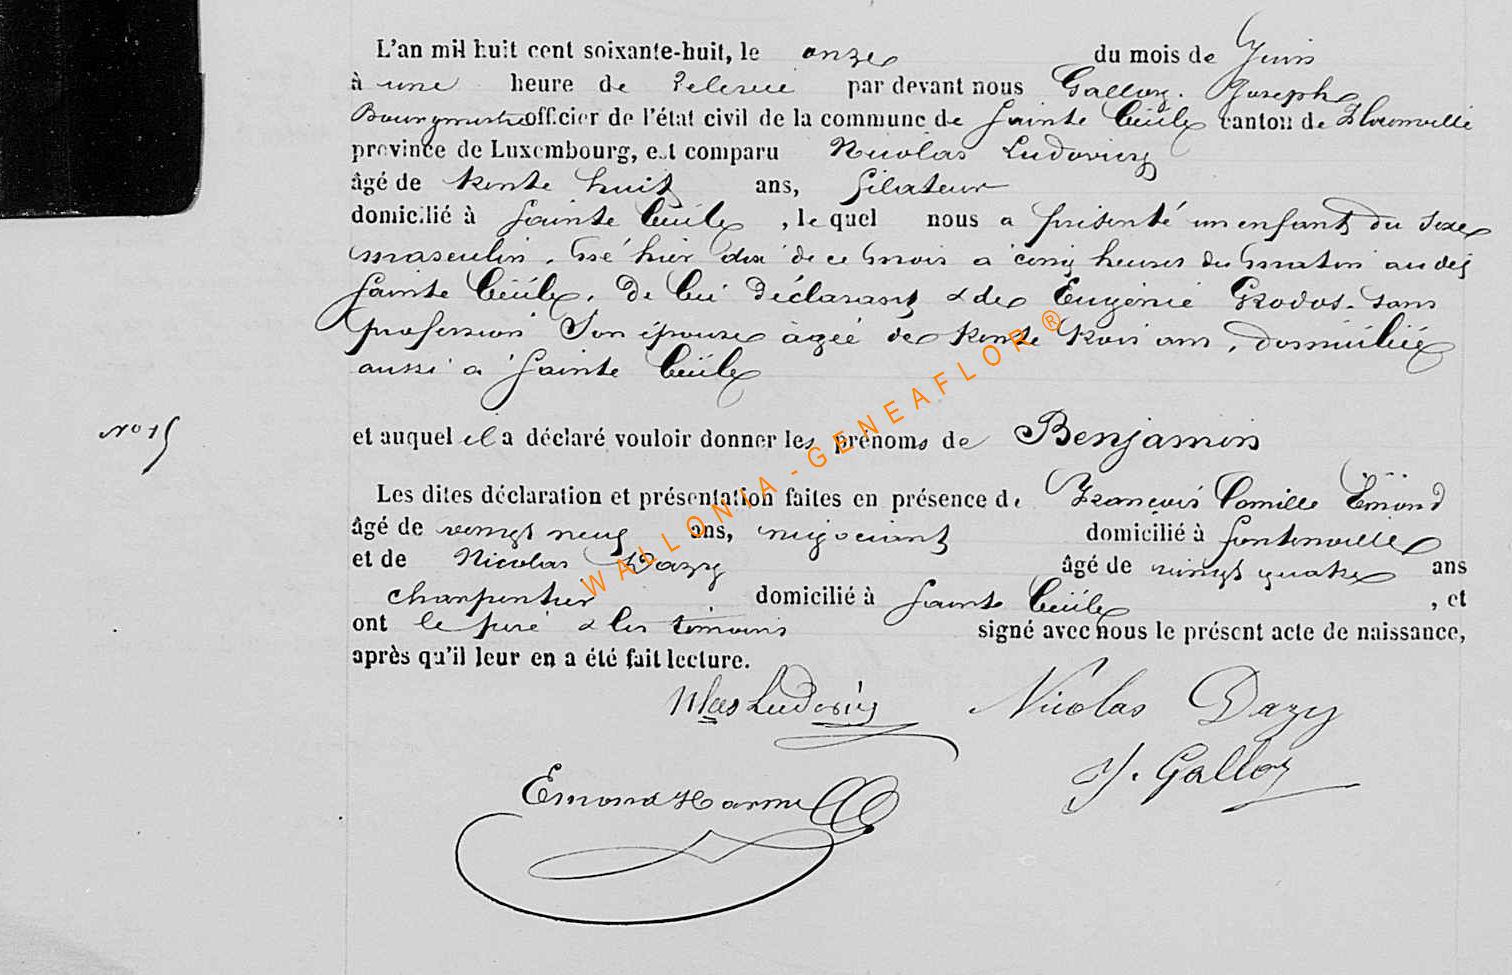 L'an mil huit cent soixante-huit, le onze du mois de Juin
à une heure de relevée par devant nous Galloy. Joseph
Bourgmestre officier de l'état civil de la commune de Sainte Cécile canton de Florenville
province de Luxembourg, est comparu Nicolas Ludovicy
âgé de trente huit ans, filateur
domicilié à Sainte Cécile, le quel nous a présenté un enfant du sexe
masculin, né hier dix de ce mois à cinq heures du matin au dit
Sainte Cécile, de lui déclarant & de Eugénie Grodos. sans
profession Son épouse âgée de trente trois ans, domiciliée
aussi à Sainte Cécile
N° 15
et auquel il a déclaré vouloir donner les prénoms de Benjamin
Les dites déclaration et présentation faites en présence de François Camille Émond
âgé de vingt neuf ans, négociant domicilié à Fontenoille
et de Nicolas Dazy âgé de vingt quatre ans
charpentier domicilié à Sainte Cécile, et
ont le père & les témoins signé avec nous le présent acte de naissance,
après qu'il leur en a été fait lecture.
Nlas Ludovicy Nicolas Dazy
J. Galloy
Emond
WALLONIA - GENEAFLOR ®